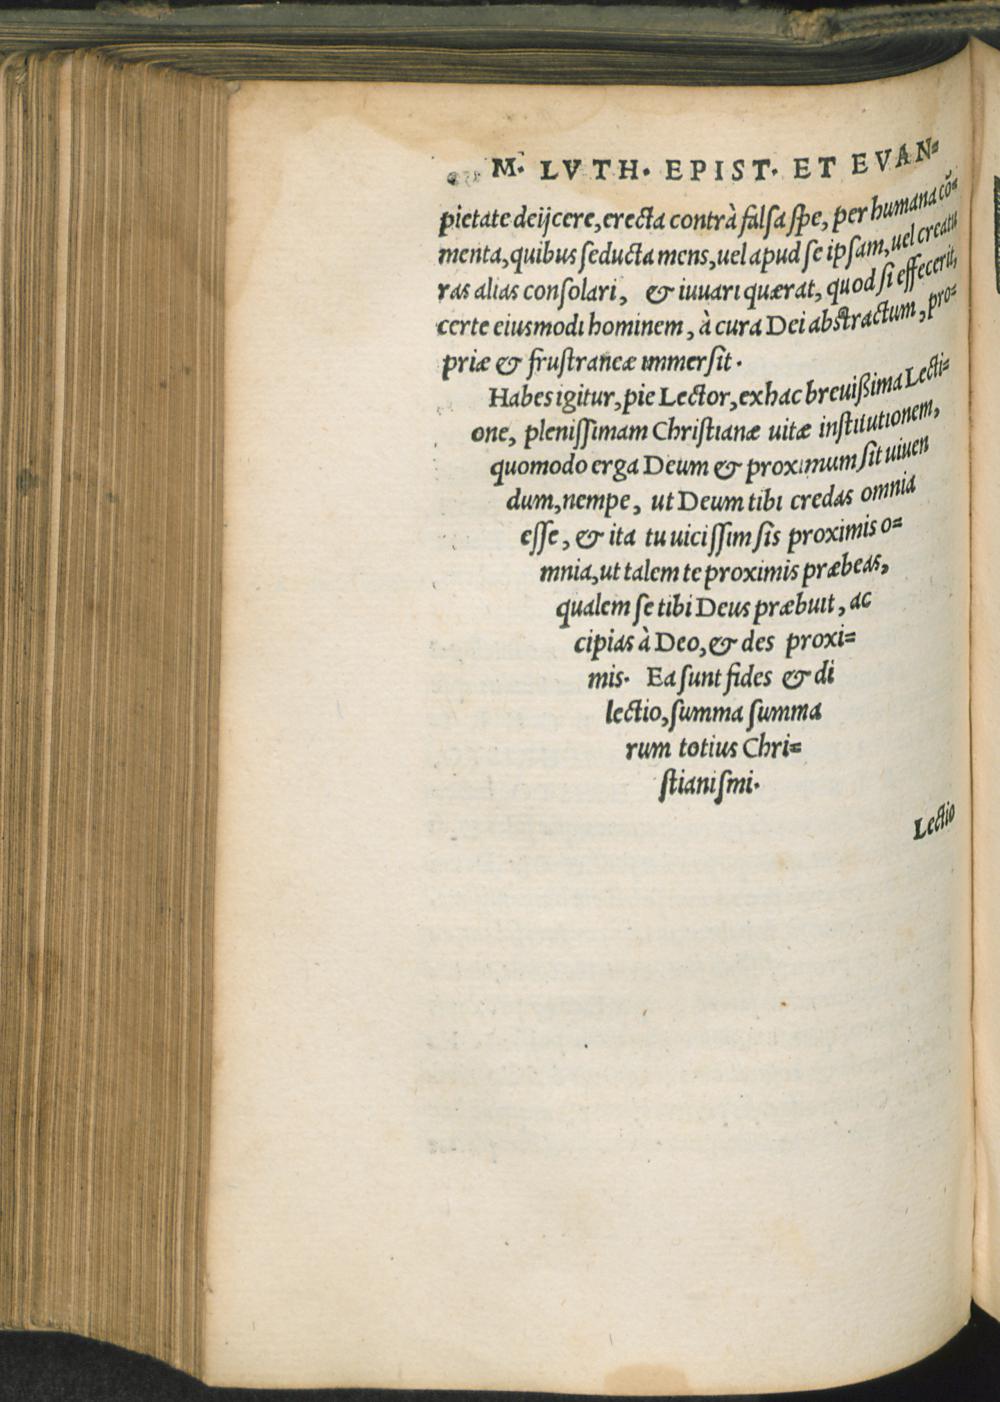 M. LVTH. EPIST. ET EVAN=
pietate deijcere, erecta contrà falſa ſpe, per humana cō=
menta, quibus ſeducta mens, uel apud ſe ipſam, uel creatu
ras alias conſolari, & iuuari quærat, quod ſi effecerit,
certe eiusmodi hominem, à cura Dei abſtractum, pro=
priæ & fruſtraneæ immerſit.
Habes igitur, pie Lector, ex hac breuißima Lecti=
one, pleniſſimam Chriſtianæ uitæ inſtitutionem,
quomodo erga Deum & proximum ſit uiuen
dum, nempe, ut Deum tibi credas omnia
eſſe, & ita tu uiciſſim ſis proximis o=
mnia, ut talem te proximis præbeas,
qualem ſe tibi Deus præbuit, ac
cipias à Deo, & des proxi=
mis. Ea ſunt fides & di
lectio, ſumma ſumma
rum totius Chri=
ſtianiſmi.
Lectio